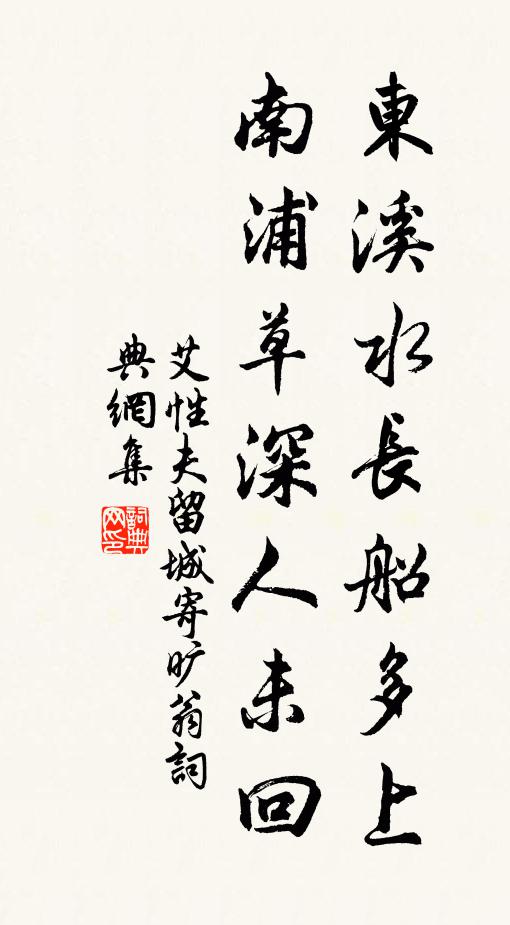 東溪水長船多上
南浦草深人未回
艾性夫留城寄旷翁詞
典網集
詞典
网印